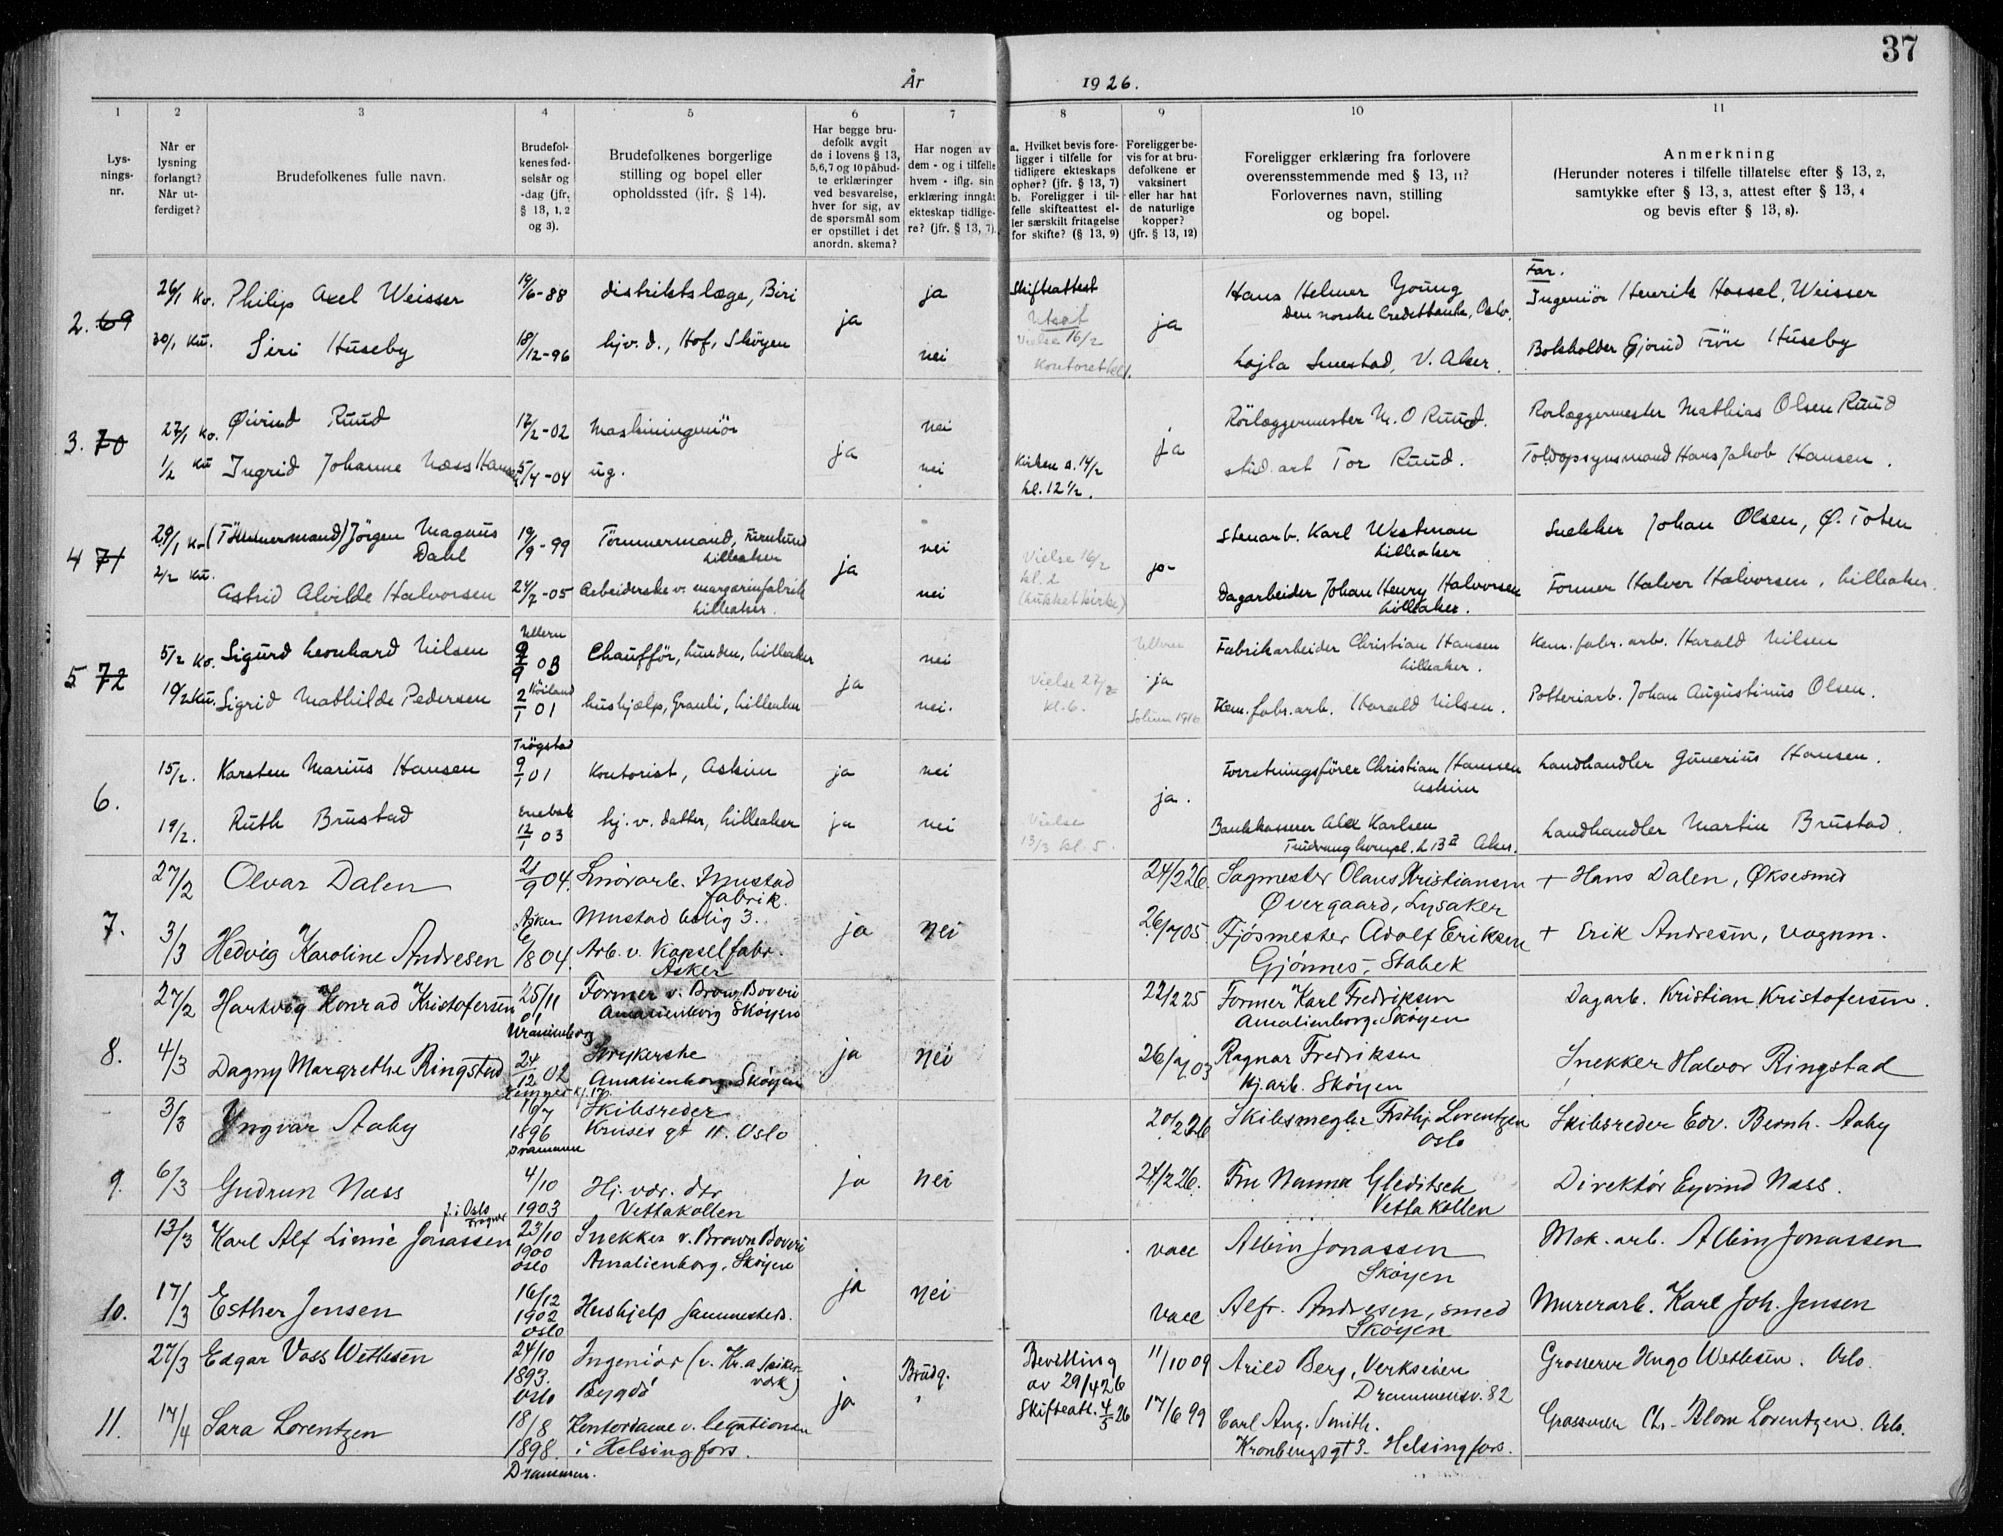 37
År 1926.
1 2 3 4 5 6 7 8 9 10 11
Lysningsnr.
Når er lysning forlangt? Når utferdiget?
Brudefolkenes fulle navn.
Brudefolkenes fødselsår og -dag (jfr. § 13, 1, 2 og 3).
Brudefolkenes borgerlige stilling og bopel eller opholdssted (jfr. § 14).
Har begge brudefolk avgit de i lovens § 13, 5,6,7 og 10 påbudte erklæringer ved besvarelse, hver for sig, av de spørsmål som er opstillet i det anordn. skema?
Har nogen av dem - og i tilfelle hvem - iflg. sin erklæring inngått ekteskap tidligere? (jfr. § 13, 7).
a. Hvilket bevis foreligger i tilfelle for tidligere ekteskaps ophør? (jfr. § 13, 7) b. Foreligger i tilfelle skifteattest eller særskilt fritagelse for skifte? (§ 13, 9)
Foreligger bevis for at brudefolkene er vaksinert eller har hat de naturlige kopper? (jfr. § 13, 12)
Foreligger erklæring fra forlovere overensstemmende med § 13, 11? Forlovernes navn, stilling og bopel.
Anmerkning (Herunder noteres i tilfelle tillatelse efter § 13, 2, samtykke efter § 13, 3, attest efter § 13, 4 og bevis efter § 13, 8).
2. 69 26/1 Ko. Philip Axel Weisser 19/6-88 distriktslæge, Biri ja ja Skifteattest Hans Helmer Young Den norske Creditbank, Oslo. Far. Ingeniör Henrik Hassel Weisser
30/1 Ku. Siri Huseby 18/12-96 hjv. d., Hof, Sköyen nei Vielse 16/2 Kontoret kl. ja Lajla Smestad, V. Aker. Bokholder Huseby
3. 70 27/1 Ko. Øivind Ruud 17/2-02 Maskiningeniör ja nei ja Rörlæggermester M. O Ruud. Rörlæggermester Mathias Olsen Ruud
1/2 Ku Ingrid Johanne Næss Hansen 5/4-04 ug. nei Kirken d. 14/2 kl. 12 1/2. stud. art Tor Ruud. Toldopsynsmand Hans Jakob Hansen.
4 71 29/1 Ko (Tömmermand) Jörgen Magnus Dahl 19/9-99 Tömmermand, Furulund Lilleaker ja nei Vielse 16/2 kl. 2 (Lukket kirke) ja Stenarb. Karl Westman Lilleaker Snekker Johan Olsen, Ø. Toten
2/2 Ku. Astrid Alvilde Halvorsen 24/7-05 Arbeiderske v. margarinfabrik Lilleaker. nei Dagarbeider Johan Henry Halvorsen Lilleaker. Former Halvor Halvorsen. Lilleaker.
5 72 5/2 Ko. Sigurd Leonhard Nilsen Ullern 9/9 03 Chaufför, Lunden, Lilleaker ja nei Vielse 27/2 kl. 6. Ullern ja Fabrikarbeider Christian Hansen Lilleaker. Kem. fabr. arb. Harald Nilsen
10/2 Ku. Sigrid Mathilde Pedersen 2/1 01 hushjælp, Granli, Lilleaker nei. Solum 1916 Kem. fabr. arb. Harald Nilsen. Potteriarb. Johan Augustinus Olsen.
6. 15/2. Karsten Marius Hansen Trögstad 9/1 01 Kontorist, Askim ja nei ja. Forretningsförer Christian Hanssen Askim Landhandler Gunerius Hansen.
19/2. Ruth Brustad Enebak 12/1 03 hj. v. datter, Lilleaker ja nei Vielse 13/3 kl. 5. Bankkasserer Alex Karlsen Aker. Landhandler Martin Brustad.
7. 27/2 Olvar Dalen 21/9 04. Smörarb. Mustad fabrik. Mustad bolig 3. ja nei 24/2 26. Sagmester Olaus Kristiansen Øvergaard, Lysaker + Hans Dalen, Øksesmed
3/3 Hedvig Karoline Andresen Asker 6/8 04. Arb. v. Kapselfabr. Asker 26/7 05 Fjösmester Adolf Eriksen Gjönnes, Stabek + Erik Andresen, vognm.
8. 27/2 Hartvig Konrad Kristofersen 25/11 01 Former v. Brown Boveri Amalienborg Sköyen ja nei 22/2 25 Former Karl Fredriksen Amalienborg, Sköyen Dagarb. Kristian Kristofersen.
4/3 Dagny Margrethe Ringstad Uranienborg 24/12 02 Strykerske Amalienborg, Sköyen 26/9 03 Ragnar Fredriksen Hj.arb. Sköyen Snekker Halvor Ringstad
9. 3/3 Yngvar Aaby 16/7 1896 Drammen Skibsreder Kruses gt 11. Oslo ja nei 20/2 26 Skibsmegler Fridtj. Lorentzen Oslo Skibsreder Edv. Bernh. Aaby
6/3 Gudrun Næss f. i Oslo Frogner 4/10 1903 Hj. vær. dtr Vettakollen 24/2 26. Fru Nanna Gleditsch Vettakollen Direktör Eyvind Næss.
10. 13/3 Karl Alf Linné Jonassen 23/10 1900 Oslo Snekker v. Brown Boveri Amalienborg, Sköyen ja nei vacc Albin Jonassen Sköyen Mek. arb. Albin Jonassen
17/3 Esther Jensen 16/12 1902 Oslo Hushjelp sammesteds. vacc Alfr. Andresen, smed Sköyen Murerarb. Karl Joh. Jensen
11. 27/3 Edgar Voss Wethesen 24/10 1893. Oslo Ingeniör (v. Kr.a Spikerverk) Bygdö ja Brudg. Bevilling av 29/4 26 Skifteatt. 4/5 26 11/10 09 Arild Berg, Verkseier Drammensv. 82 Grosserer Hugo Wethesen. Oslo.
17/4 Sara Lorentzen 18/8 1898. Drammen. Kontordame v. legationen i Helsingfors. 17/6 99 Carl Aug. Smith. Kronbergsgt 3. Helsingfors. Grosserer Chr. Blom Lorentzen. Oslo.